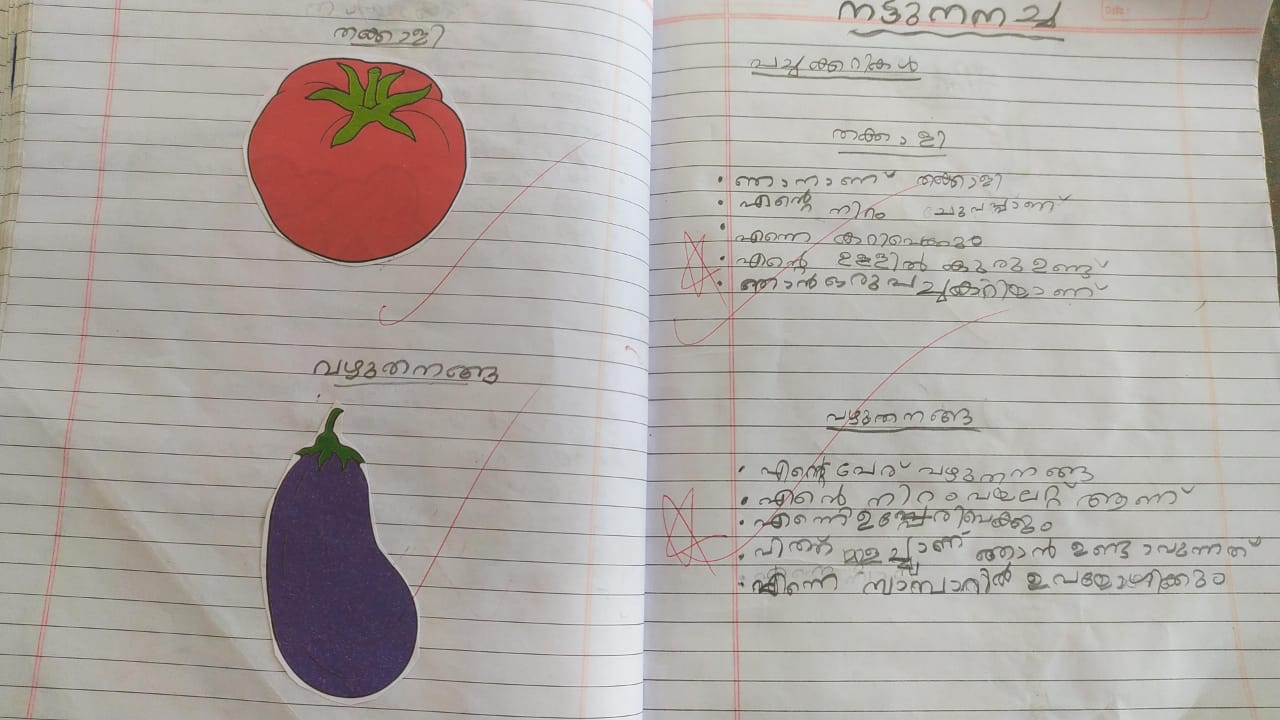 തക്കാളി
വഴുതനങ്ങ
നട്ടുനനച്ച
പച്ചക്കറികൾ
തക്കാളി
• ഞാനാണ് തക്കാളി
• എന്റെ നിറം ചുവപ്പാണ്
• എന്നെ കറിവെക്കും
• എന്റെ ഉള്ളിൽ കുരു ഉണ്ട്
• ഞാൻ ഒരു പച്ചക്കറിയാണ്
വഴുതനങ്ങ
• എന്റെ പേര് വഴുതനങ്ങ
• എൻെ നിറം വയലറ്റ് ആണ്
• എന്നെ ഉപ്പേരിവെക്കും
• വിത്ത് മുളച്ചാണ് ഞാൻ ഉണ്ടാവുന്നത്
• എന്നെ സാമ്പാറിൽ ഉപയോഗിക്കും